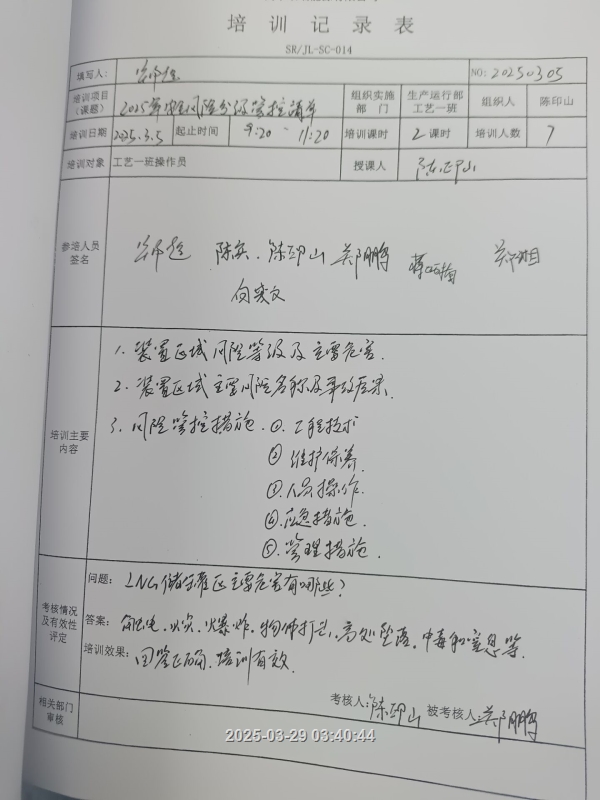 培训记录表
SR/JL-SC-014
填写人： NO: 20250305
培训项目（课题） 2025年中风险分级管控清单 组织实施部门 生产运行部工艺一班 组织人 陈印山
培训日期 2025.3.5 起止时间 9:20 - 11:20 培训课时 2课时 培训人数 7
培训对象 工艺一班操作员 授课人 陈印山
参培人员签名 陈实. 陈印山 郑鹏
向实文
培训主要内容
1. 装置区域风险等级及主要危害.
2. 装置区域主要风险名称及事故后果.
3. 风险管控措施. ①. 工程技术
② 维护保养.
③. 人员操作.
④. 应急措施.
⑤. 管理措施.
考核情况及有效性评定
问题： LNG储罐区主要危害有哪些?
答案： 触电、火灾、火爆炸、物体打击、高处坠落、中毒和窒息等.
培训效果： 回答正确, 培训有效.
相关部门审核 考核人: 陈印山 被考核人: 郑鹏
2025-03-29 03:40:44